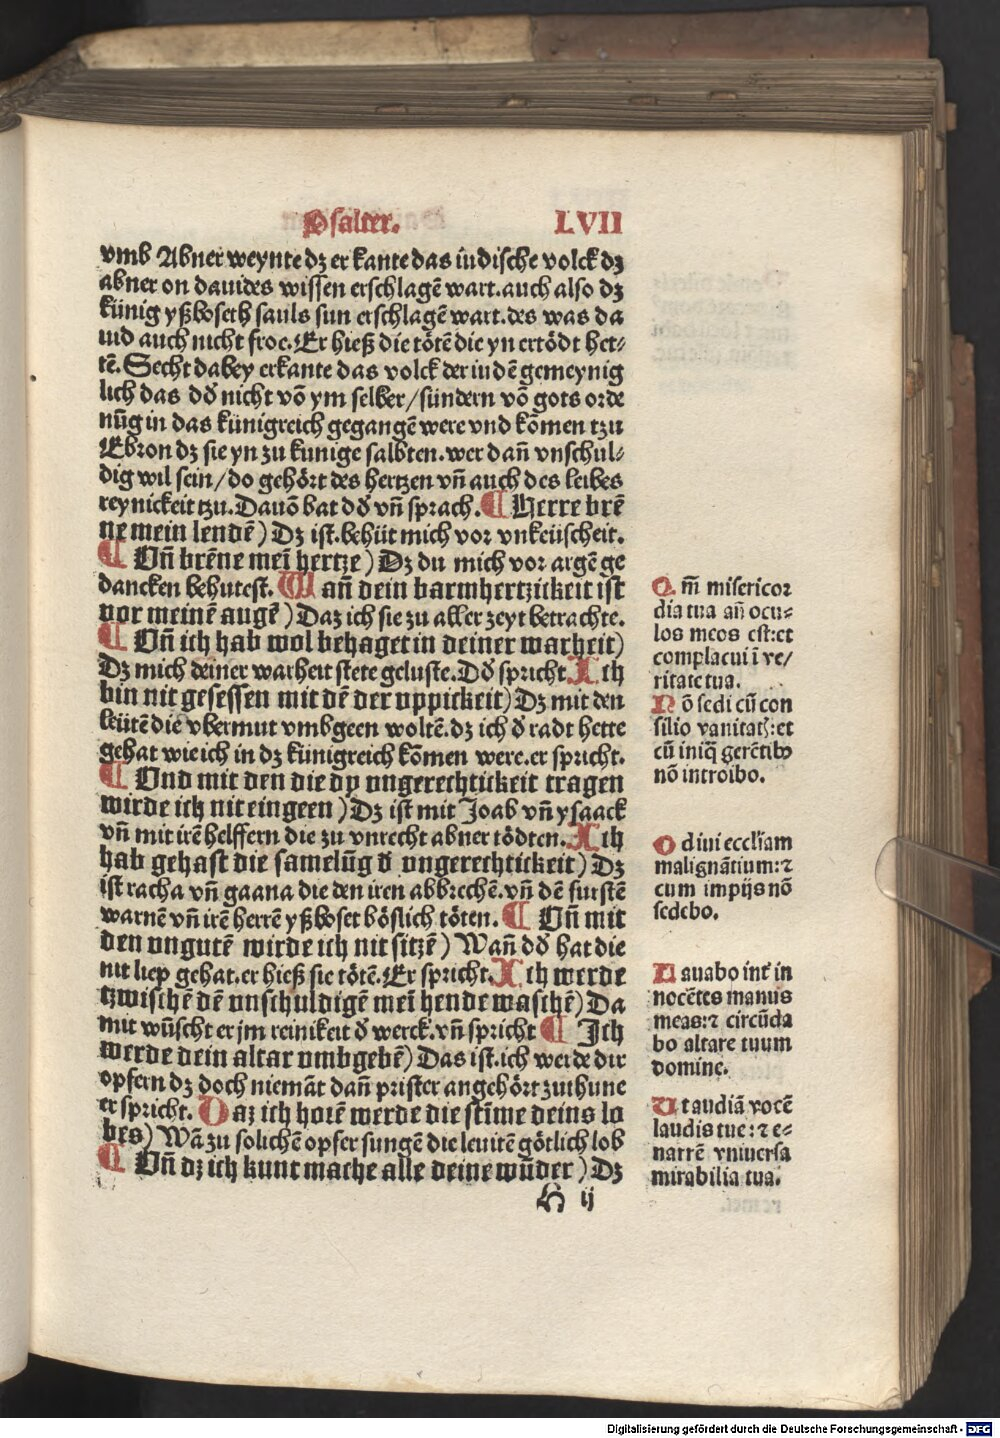 Psalter. LVII
vmb Abner weynte dʒ er kante das iudische volck dʒ
abner on dauides wissen erschlagē wart. auch also dʒ
künig yßboseth sauls sun erschlagē wart. des was da
uid auch nicht froe. Er hieß die tötē die yn ertödt het⸗
tē. Secht dabey erkante das volck der iudē gemeynig
lich das dđ nicht vō ym selber / sündern vō gots orde
nūg in das künigreich gegangē were vnd kōmen tzu
Ebron dʒ sie yn zu kunige salbten. wer dañ vnschul⸗
dig wil sein / do gehört des hertzen vñ auch des leibes
reynickeit tzu. Dauō bat dđ vñ sprach. ¶ Herre brē
ne mein lendē) Dʒ ist. behüt mich vor vnkeüscheit.
¶ Vñ brēne meī hertze) Dʒ du mich vor argē ge
dancken behutest. Wañ dein barmhertzikeit ist
vor meinē augē) Daz ich sie zu aller zeyt betrachte.
¶ Vñ ich hab wol behaget in deiner warheit)
Dʒ mich deiner warheit stete geluste. Dđ spricht. Ich
bin nit gesessen mit dē der vppickeit) Dʒ mit den
leütē die vbermut vmbgeen woltē. dʒ ich đ radt hette
gehat wie ich in dʒ künigreich kōmen were. er spricht.
¶ Vnd mit den die dy vngerechtickeit tragen
wirde ich nit eingeen) Dʒ ist mit Joab vñ ysaack
vñ mit irē helffern die zu vnrecht abner tödten. Ich
hab gehast die samelūg đ vngerechtickeit) Dʒ
ist racha vñ gaana die den iren abbrechē. vñ dē furstē
warnē vñ irē herrē yßboset böslich töten. ¶ Vñ mit
den vngutē wirde ich nit sitzē) Wañ dđ hat die
nit liep gehat. er hieß sie tötē. Er spricht. Ich werde
tzwischē dē vnschuldigē meī hende waschē) Da
mit wūscht er jm reinikeit đ werck. vñ spricht ¶ Ich
werde dein altar vmbgebē) Das ist. ich werde dir
opfern dʒ doch niemāt dañ prister angehört zuthune
er spricht. Daz ich horē werde die stīme deins lo
bes) Wā zu solichē opfer sungē die leuitē götlich lob
¶ Vñ dʒ ich kunt mache alle deine wūder) Dʒ
H ij
Q. m̄ misericor
dia tua añ ocu⸗
los meos est: et
complacui ī ve/
ritate tua.
Nō sedi cū con
silio vanitatʒ: et
cū iniq̄ gerētibꝰ
nō introibo.
Odiui eccl'iam
malignātium: ⁊
cum impijs nō
sedebo.
Lauabo int̄ in
nocētes manus
meas: ⁊ circūda
bo altare tuum
domine.
Ut audiā vocē
laudis tue: ⁊ e⸗
narrē vniuersa
mirabilia tua.
Digitalisierung gefördert durch die Deutsche Forschungsgemeinschaft - DFG